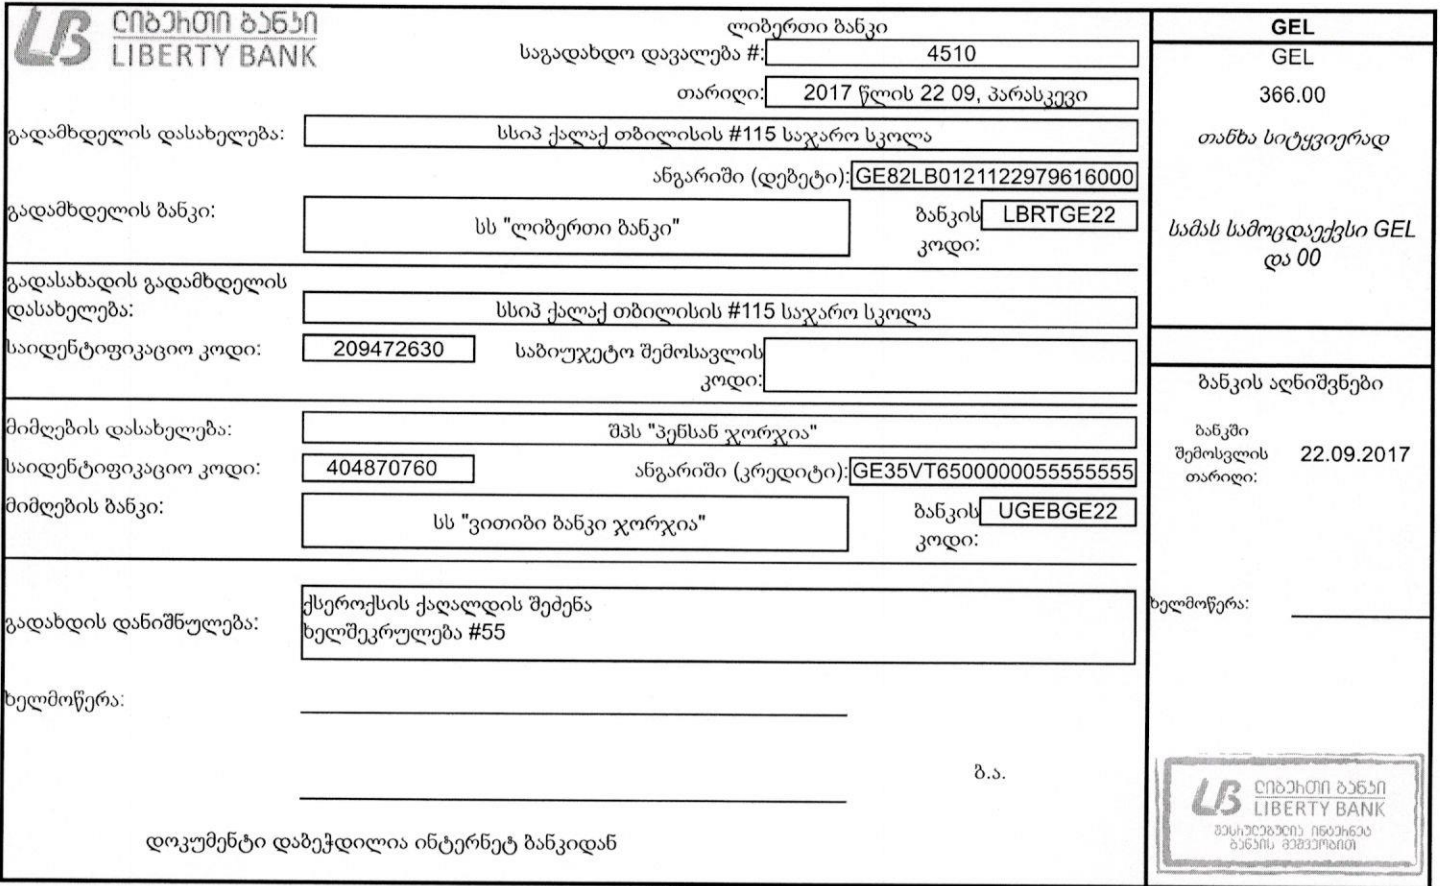 ლიბერთი ბანკი
LIBERTY BANK
ლიბერთი ბანკი
საგადახდო დავალება #: 4510
თარიღი: 2017 წლის 22 09, პარასკევი
გადამხდელის დასახელება: სსიპ ქალაქ თბილისის #115 საჯარო სკოლა
ანგარიში (დებეტი): GE82LB0121122979616000
გადამხდელის ბანკი: სს "ლიბერთი ბანკი" ბანკის კოდი: LBRTGE22
გადასახადის გადამხდელის
დასახელება: სსიპ ქალაქ თბილისის #115 საჯარო სკოლა
საიდენტიფიკაციო კოდი: 209472630 საბიუჯეტო შემოსავლის
კოდი:
მიმღების დასახელება: შპს "პენსან ჯორჯია"
საიდენტიფიკაციო კოდი: 404870760 ანგარიში (კრედიტი): GE35VT6500000055555555
მიმღების ბანკი: სს "ვითიბი ბანკი ჯორჯია" ბანკის კოდი: UGEBGE22
გადახდის დანიშნულება: ქსეროქსის ქაღალდის შეძენა
ხელშეკრულება #55
ხელმოწერა:
ბ.ა.
დოკუმენტი დაბეჭდილია ინტერნეტ ბანკიდან
GEL
GEL
366.00
თანხა სიტყვიერად
სამას სამოცდაექვსი GEL
და 00
ბანკის აღნიშვნები
ბანკში
შემოსვლის 22.09.2017
თარიღი:
ხელმოწერა:
ლიბერთი ბანკი
LIBERTY BANK
შესრულებულია ინტერნეტ
ბანკის მეშვეობით